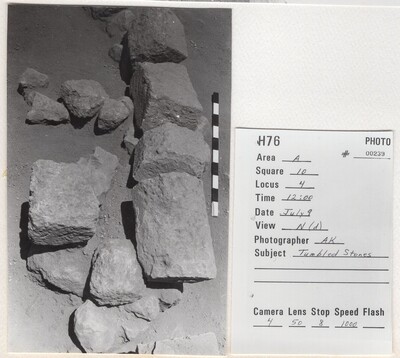 H76 PHOTO
Area A # 00239
Square 10
Locus 4
Time 12:00
Date July 9
View N (↓)
Photographer AK
Subject Tumbled Stones
Camera Lens Stop Speed Flash
4 50 8 1000